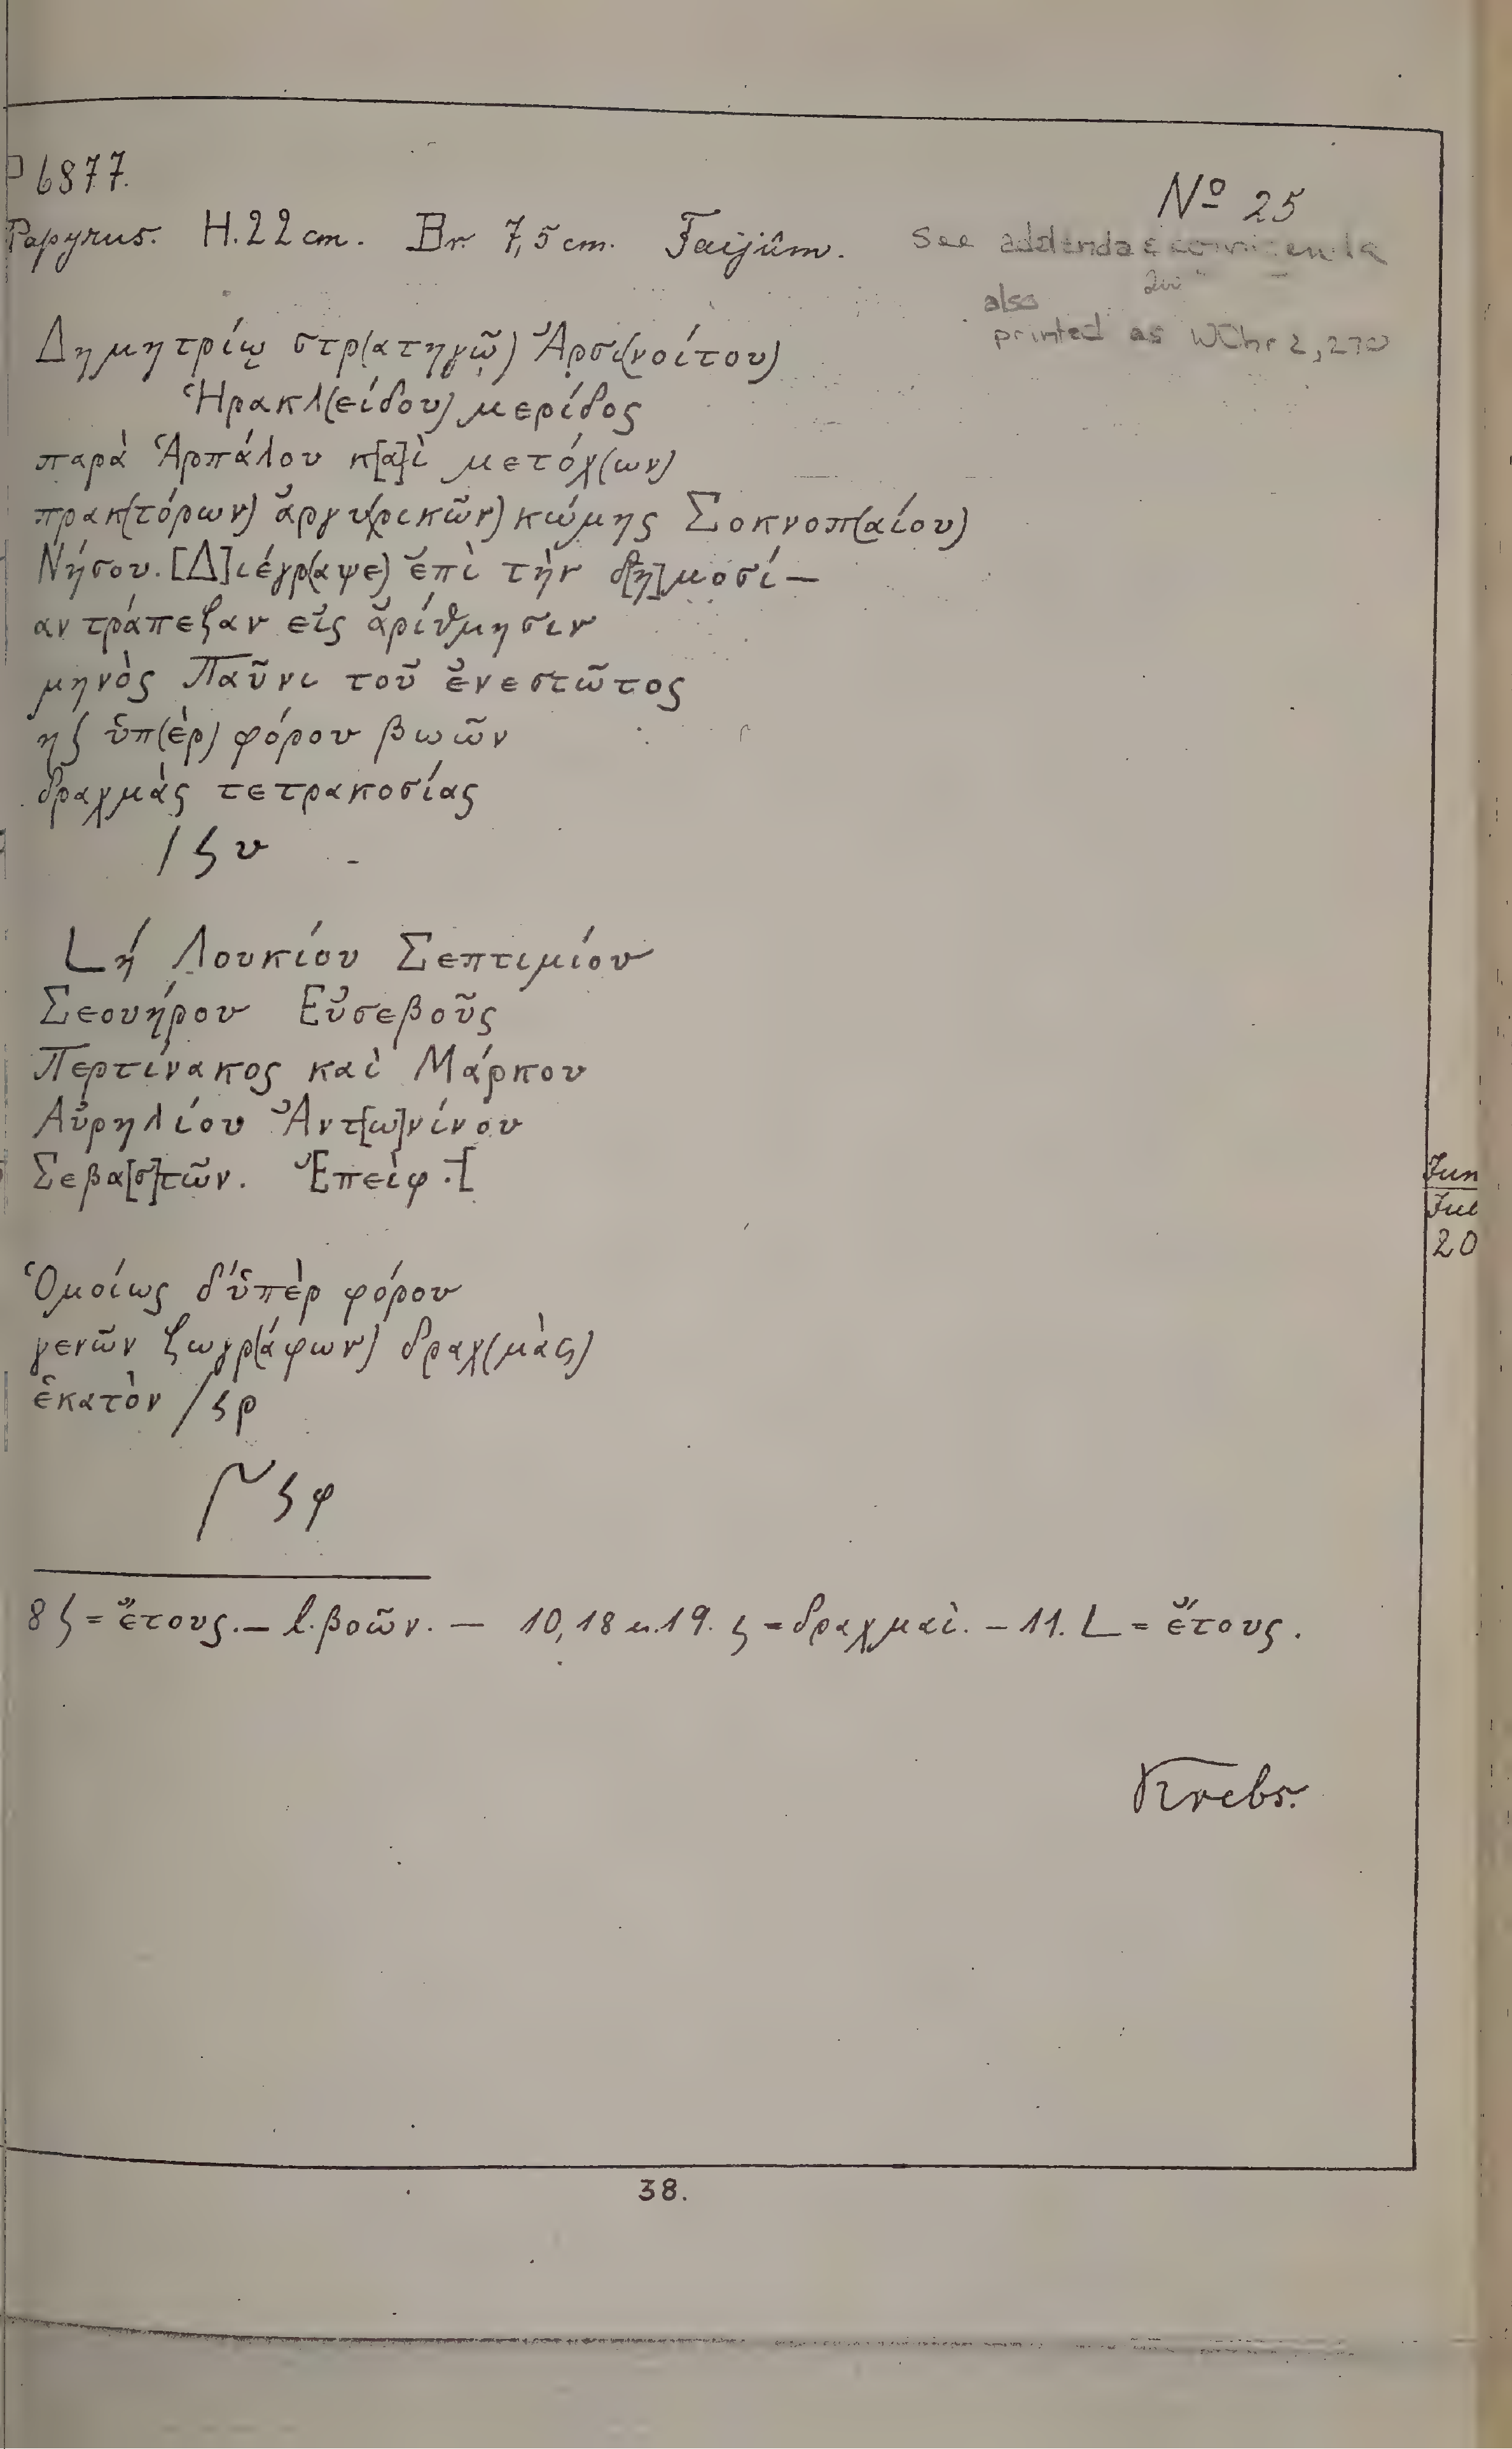 P 6877.
Nº 25
Papyrus. H. 22 cm. Br. 7,5 cm. Faijûm.
See addenda &
also
printed as WChr 2, 270
Δημητρίῳ στρ(ατηγῷ) Ἀρσι(νοίτου)
Ἡρακλ(είδου) μερίδος
παρὰ Ἁρπάλου κ[α]ὶ μετόχ(ων)
πρακ(τόρων) ἀργυ(ρικῶν) κώμης Σοκνοπ(αίου)
Νήσου. [Δ]ιέγρ(αψε) ἐπὶ τὴν δ[η]μοσί—
αν τράπεζαν εἰς ἀρίθμησιν
μηνὸς Παῦνι τοῦ ἐνεστῶτος
ηʃ ὑπ(ὲρ) φόρου βωῶν
δραχμὰς τετρακοσίας
/ ϛ υ
L ή Λουκίου Σεπτιμίου
Σεουήρου Εὐσεβοῦς
Περτίνακος καὶ Μάρκου
Αὐρηλίου Ἀντ[ω]νίνου
Σεβα[σ]τῶν. Ἐπεὶφ .[
Jun
Jul
20
Ὁμοίως δ' ὑπὲρ φόρου
γενῶν ζωγρ(άφων) δραχ(μὰς)
ἑκατὸν / ϛ ρ
ϛ φ
8 ʃ = ἔτους. — l. βοῶν. — 10, 18 u. 19. ϛ = δραχμαὶ. — 11. L = ἔτους.
Krebs.
38.